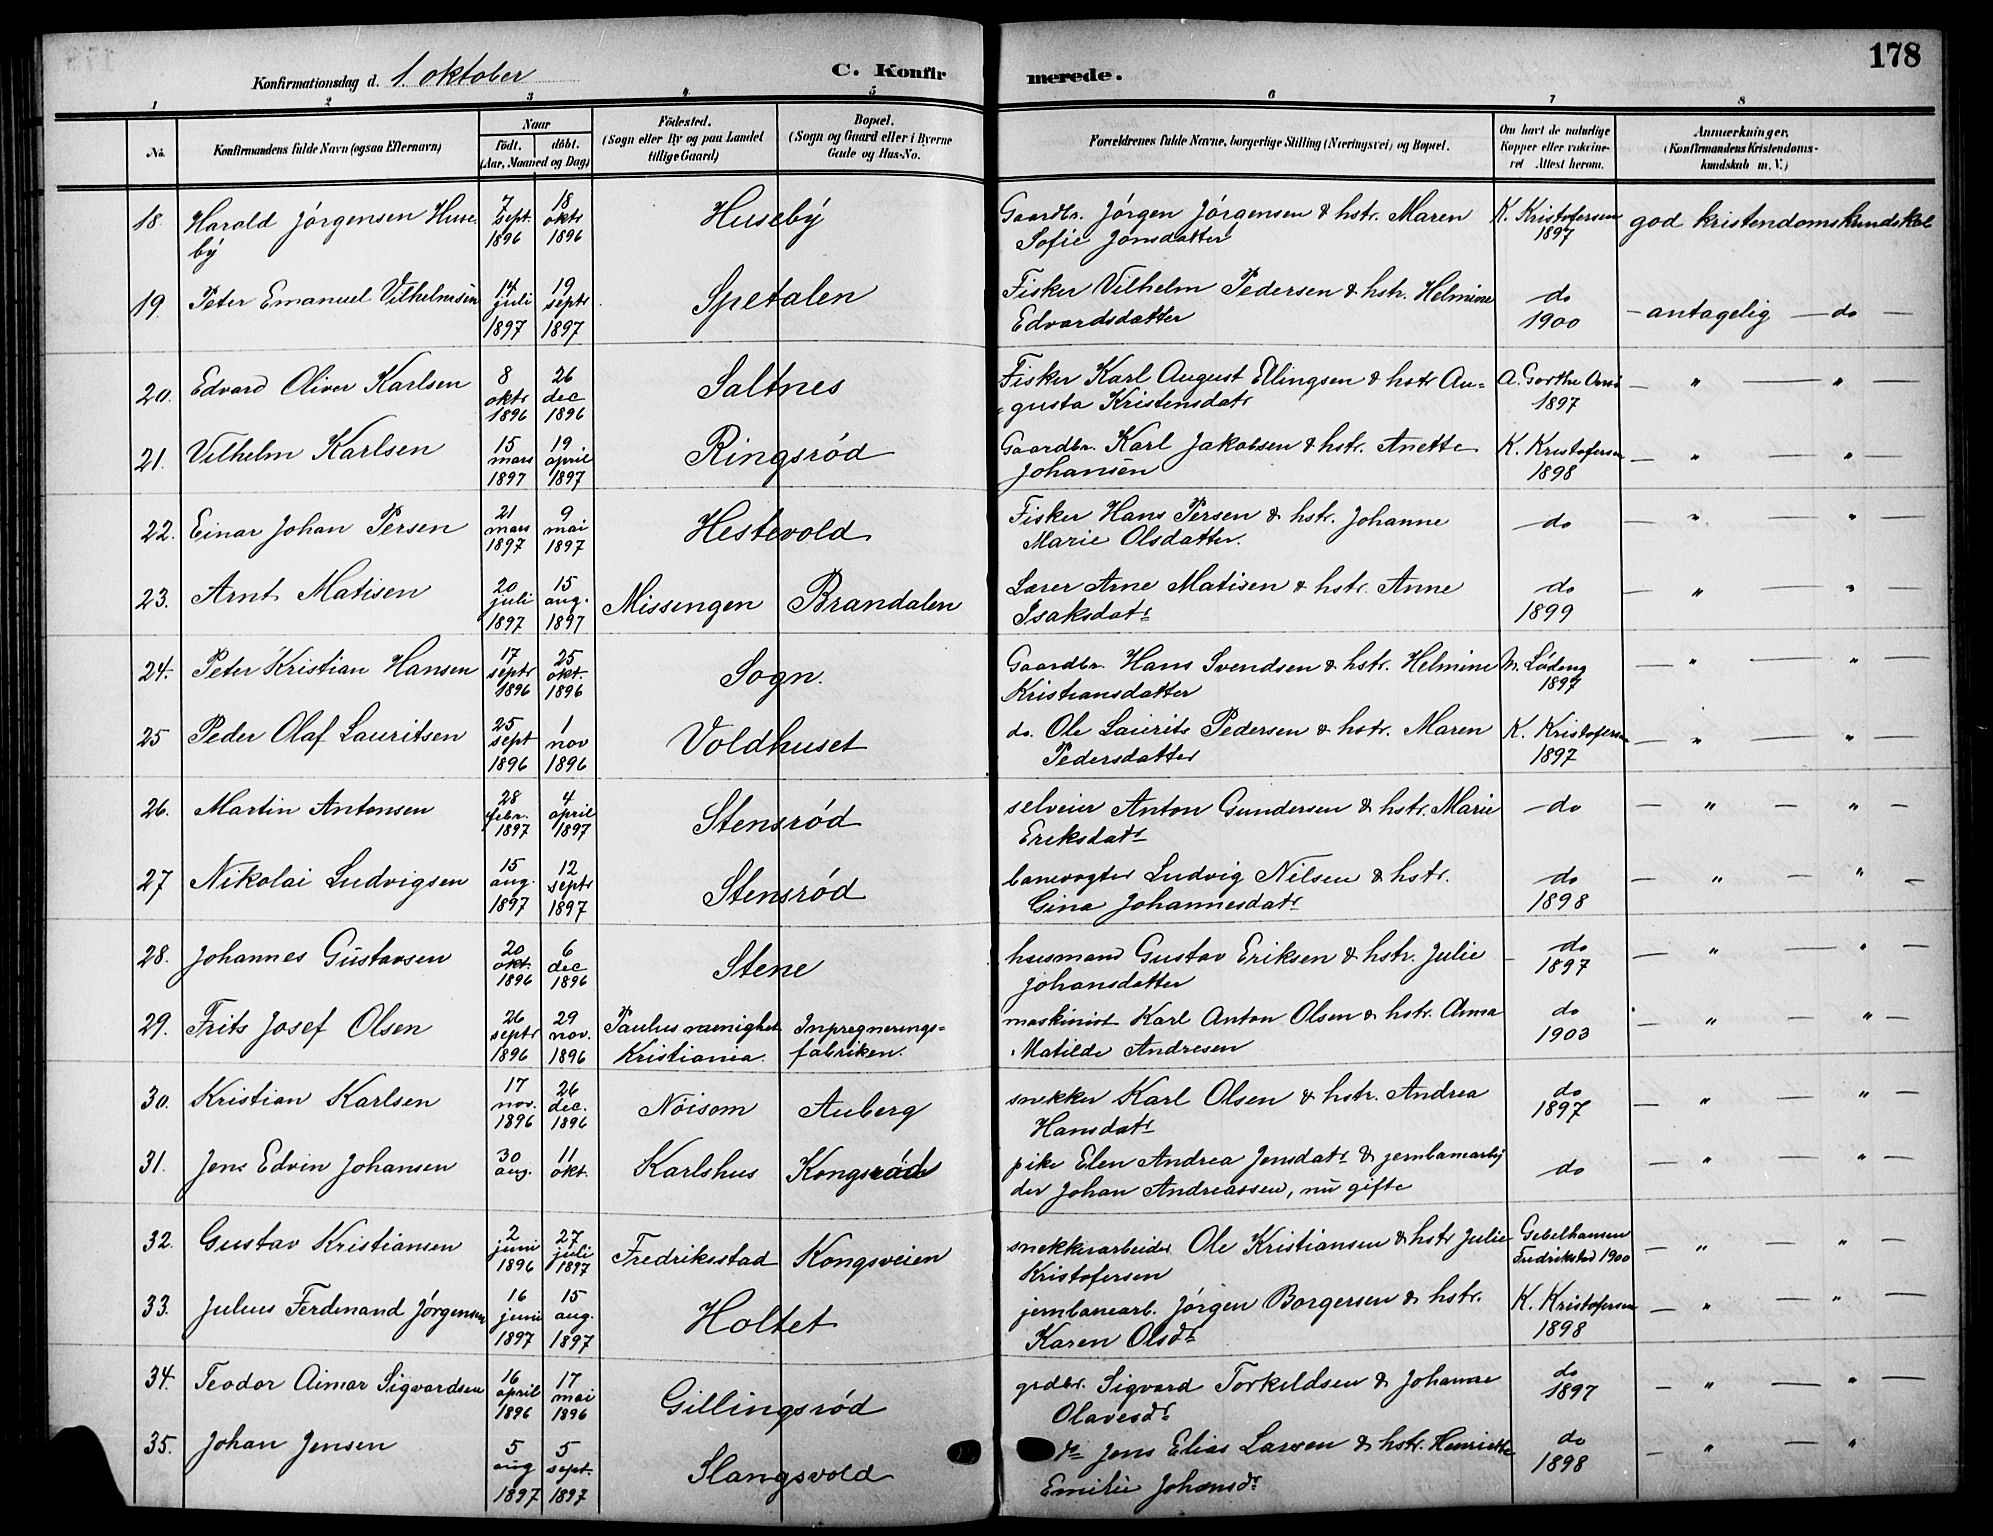 178
Konfirmationsdag d. 1. oktober C. Konfirmerede.
1 2 3 4 5 6 7 8
No. Konfirmandens fulde Navn (ogsaa Efternavn) Naar födt. döbt. (Aar, Maaned og Dag) Födested. (Sogn eller By og paa Landet tillige Gaard) Bopæl. (Sogn og Gaard eller i Byerne Gade og Hus-No. Forældrenes fulde Navne, borgerlige Stilling (Næringsvei) og Bopæl. Om havt de naturlige Kopper eller vakcineret Attest herom. Anmærkninger. (Konfirmandens Kristendomskundskab m. V.)
18. Harald Jörgensen Huseby 7 sept. 1896 18 oktr 1896 Huseby Gaardbr. Jörgen Jörgensen & hstr. Maren Sofie Jonsdatter K. Kristofersen 1897 god kristendomskundskab
19. Peter Emanuel Vilhelmsen 14 juli 1897 19 septr 1897 Spetalen Fisker Vilhelm Pedersen & hstr. Helmine Edvardsdatter do 1900 — antagelig — do —
20. Edvard Oliver Karlsen 8 oktr 1896 26 dec 1896 Saltnes Fisker Karl August Ellingsen & hstr Augusta Kristensdatr A. Gorthe 1897 — " — " —
21. Vilhelm Karlsen 15 mars 1897 19 april 1897 Ringsröd Gaardbr. Karl Jakobsen & hstr. Anette Johansen K. Kristofersen 1898 — " — " —
22. Einar Johan Persen 21 mars 1897 9 mai 1897 Hestevold Fisker Hans Persen & hstr. Johanne Marie Olsdatter. — do — " — " —
23. Arnt Matisen 20 juli 1897 15 aug. 1897 Missengen Brandalen Lærer Arne Matisen & hstr. Anne Isaksdatr do 1899 — " — " —
24. Peter Kristian Hansen 17 septr 1896 25 okt. 1896 Sogn. Gaardbr. Hans Svendsen & hstr. Helmine Kristiansdatter M. Lödeng 1897 — " — " —
25 Peder Olaf Lauritsen 25 sept 1896 1 nov 1896 Voldhuset do. Ole Laurits Pedersen & hstr. Maren Pedersdatter K. Kristofersen 1897 — " — " —
26. Martin Antonsen 28 febr. 1897 4 april 1897 Stensröd selveier Anton Gundersen & hstr. Marie Eriksdatr — do — " — " —
27 Nikolai Ludvigsen 15 aug. 1897 12 septr 1897 Stensröd banevogter Ludvig Nilsen & hstr. Gina Johannesdatr do 1898 — " — " —
28. Johannes Gustavsen 20 okt. 1896 6 dec 1896 Stene husmand Gustav Eriksen & hstr. Julie Johansdatter — do 1897 — " — " —
29. Frits Josef Olsen 26 septr 1896 29 nov. 1896 Paulus mænighet Kristiania. Inpregneringsfabriken. maskinist Karl Anton Olsen & hstr. Anna Matilde Andresen do 1903 — " — " —
30. Kristian Karlsen 17 nov. 1896 26 dec. 1896 Nöisom Auberg snekker Karl Olsen & hstr. Andrea Hansdatr do 1897 — " — " —
31. Jens Edvin Johansen 30 aug. 11 okt. Karlshus Kongsröd pike Elen Andrea Jensdatr & jernbanearbeider Johan Andreassen, nu gifte do — " — " —
32. Gustav Kristiansen 2 juni 1896 27 juli 1897 Fredriksstad Kongsveien snekkerarbeider Ole Kristiansen & hstr Julie Kristofersen Gebelhansen Fredrikstad 1900 — " — " —
33. Julius Ferdinand Jörgensen 16 juni 1897 15 aug. 1897 Holtet jernbanearb. Jörgen Borgersen & hstr. Karen Olsdr K. Kristofersen 1898 — " — " —
34. Teodor Aimar Sigvardsen 16 april 1896 17 mai 1896 Gillingsröd grdbr. Sigvard Torkildsen & Johanne Olavesdr do 1897 — " — " —
35. Johan Jensen 5 aug 1897 5 sept. 1897 Slangsvold do Jens Elias Larsen & hstr. Henriette Emilie Johansdr do 1898 — " — "